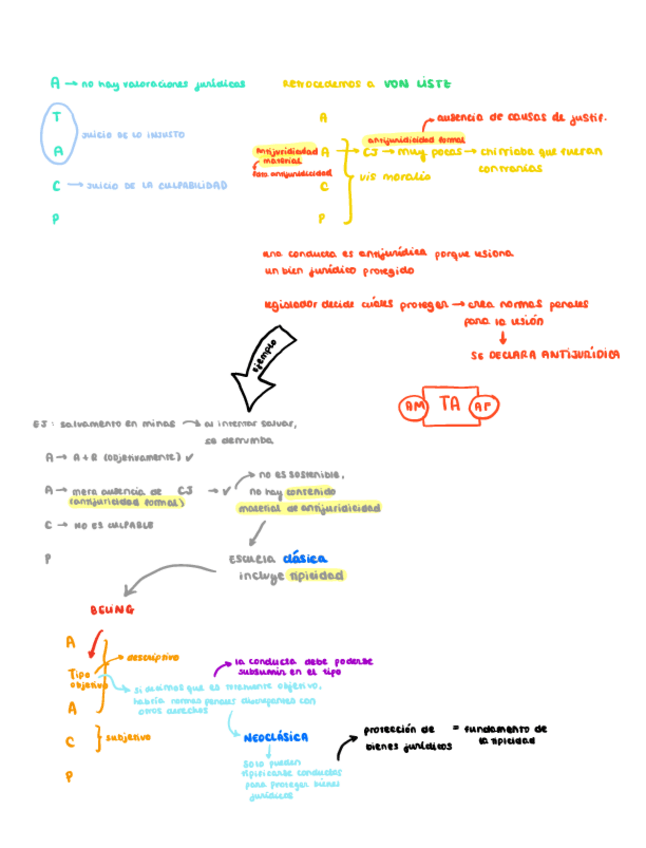 A → no hay valoraciones jurídicas
T
JUICIO DE LO INJUSTO
A
C → JUICIO DE LA CULPABILIDAD
P
Retrocedemos a VON LISTZ
A
ausencia de causas de justif.
antijuridicidad formal
Antijuridicidad material
A → CJ → muy pocas → chirriaba que fueran contrarias
vis moralis
C
P
una conducta es antijurídica porque lesiona
un bien jurídico protegido
legislador decide cuáles proteger → crea normas penales
para la lesión
↓
SE DECLARA ANTIJURÍDICA
AM TA AF
ejemplo
EJ: salvamento en minas → al intentar salvar,
se derrumba
A → A+R (objetivamente) ✓
A → mera ausencia de CJ → ✓
(antijuricidad formal)
no es sostenible,
no hay contenido
material de antijuridicidad
C → NO ES CULPABLE
P
ESCUELA clásica
incluye tipicidad
BELING
A
Tipo
objetivo
→ descriptivo
A
C } subjetivo
P
la conducta debe poderse
subsumir en el tipo
si decimos que es totalmente objetivo,
habría normas penales discrepantes con
otros derechos
NEOCLÁSICA
↓
solo pueden
tipificarse conductas
para proteger bienes
jurídicos
protección de = fundamento de
bienes jurídicos la tipicidad